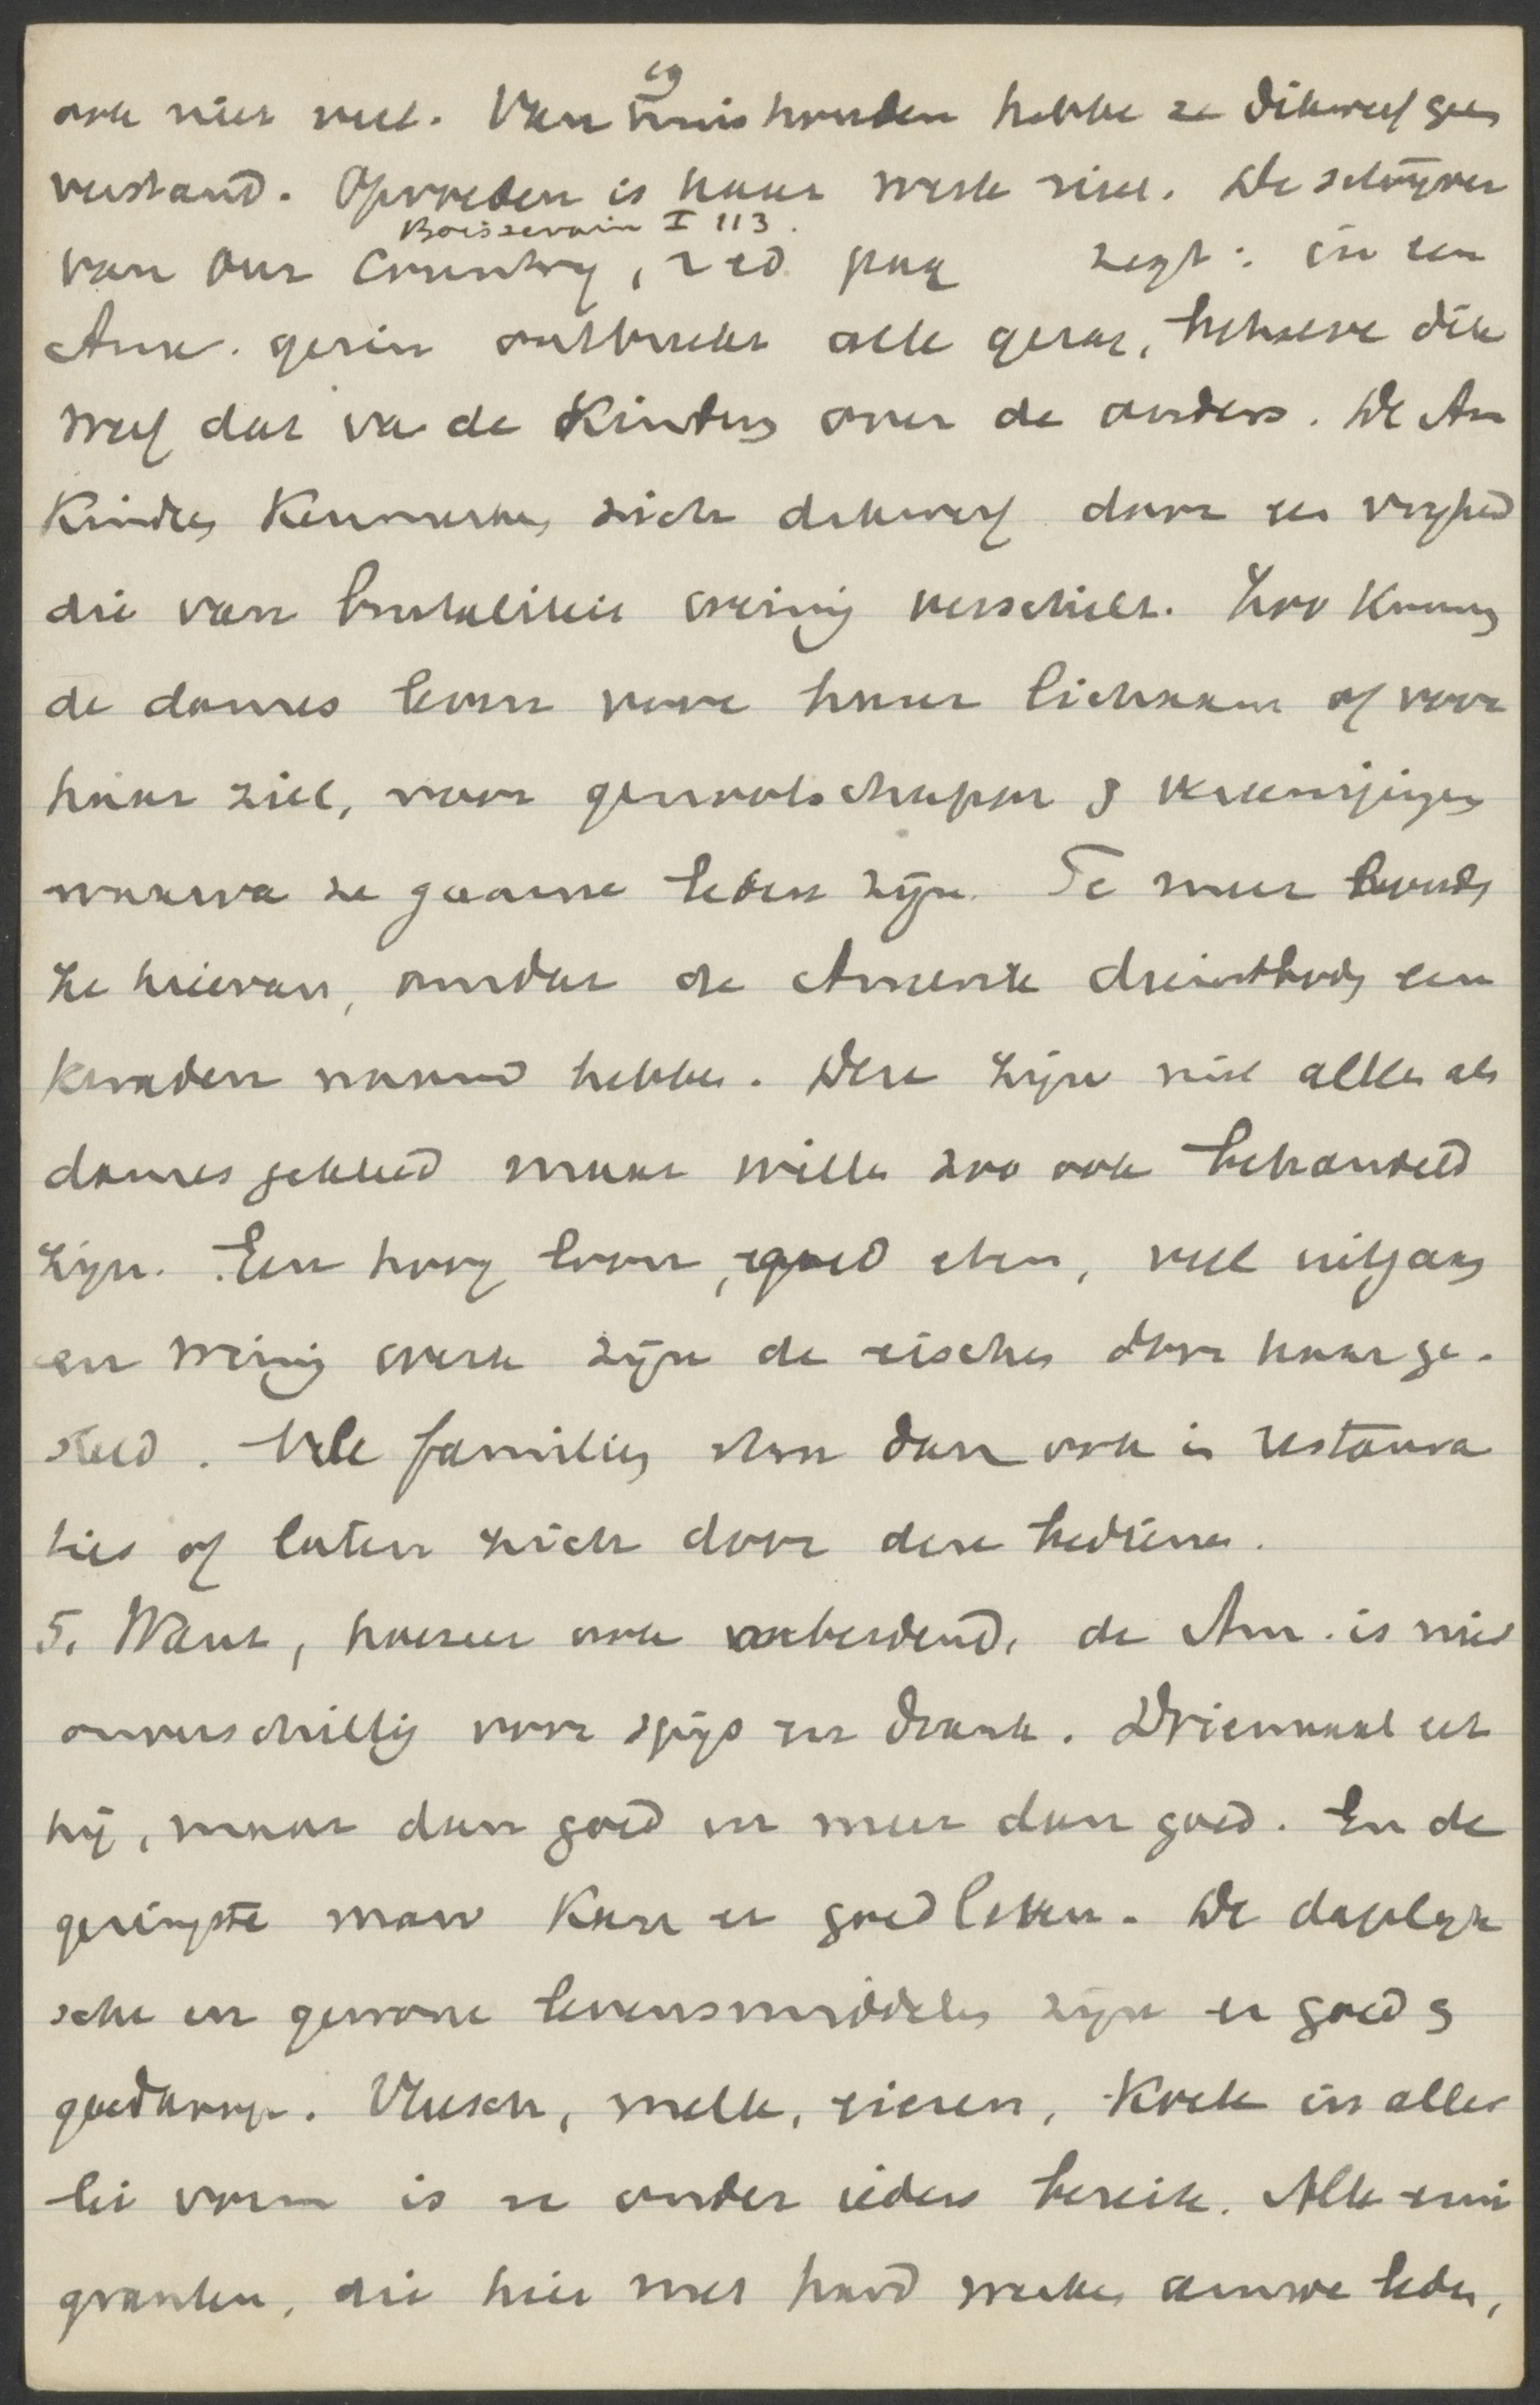 eg
ook niet veel. Van huishouden hebbe ze dikwerf geen
verstand. Opvoeden is haar werk niet. De schrijver
Boissevain I 113.
van Our Country, 2 ed. pag zegt: in een
Am. gezin ontbreekt alle gezag, behalve dik
werf dat va de Kinders over de ouders. De Am
Kinders Kenmerken zich dikwerf door een vrijheid
die van brutaliteit weinig verschilt. Zoo Kunnen
de dames leven voor haar lichaam of voor
haar ziel, voor genootschappen & vereenigingen
waarva ze gaarne leden zijn. Te meer
ze hiervan, omdat de Amerik dienstboden een
kwaden naam hebben. Deze zijn niet alleen als
dames gekleed maar willen zoo ook behandeld
zijn. Een hoog loon, goed eten, veel uitgaan
en weinig werk zijn de eischen door haar ge-
steld. Vele families eten dan ook in restaura
ties of laten zich door deze bedienen.
5. Want, hoezeer ook de Am. is niet
onverschillig voor spijs en drank. Driemaal eet
hij, maar dan goed en meer dan goed. En de
geringste man Kan er goed leven. De dagelijk
sche en gewone levensmiddelen zijn er goed &
goedkoop. Vleesch, melk, eieren, Koek in aller
lei vorm is er onder ieders bereik. Alle emi
granten, die hier met hard werken armoe leden,